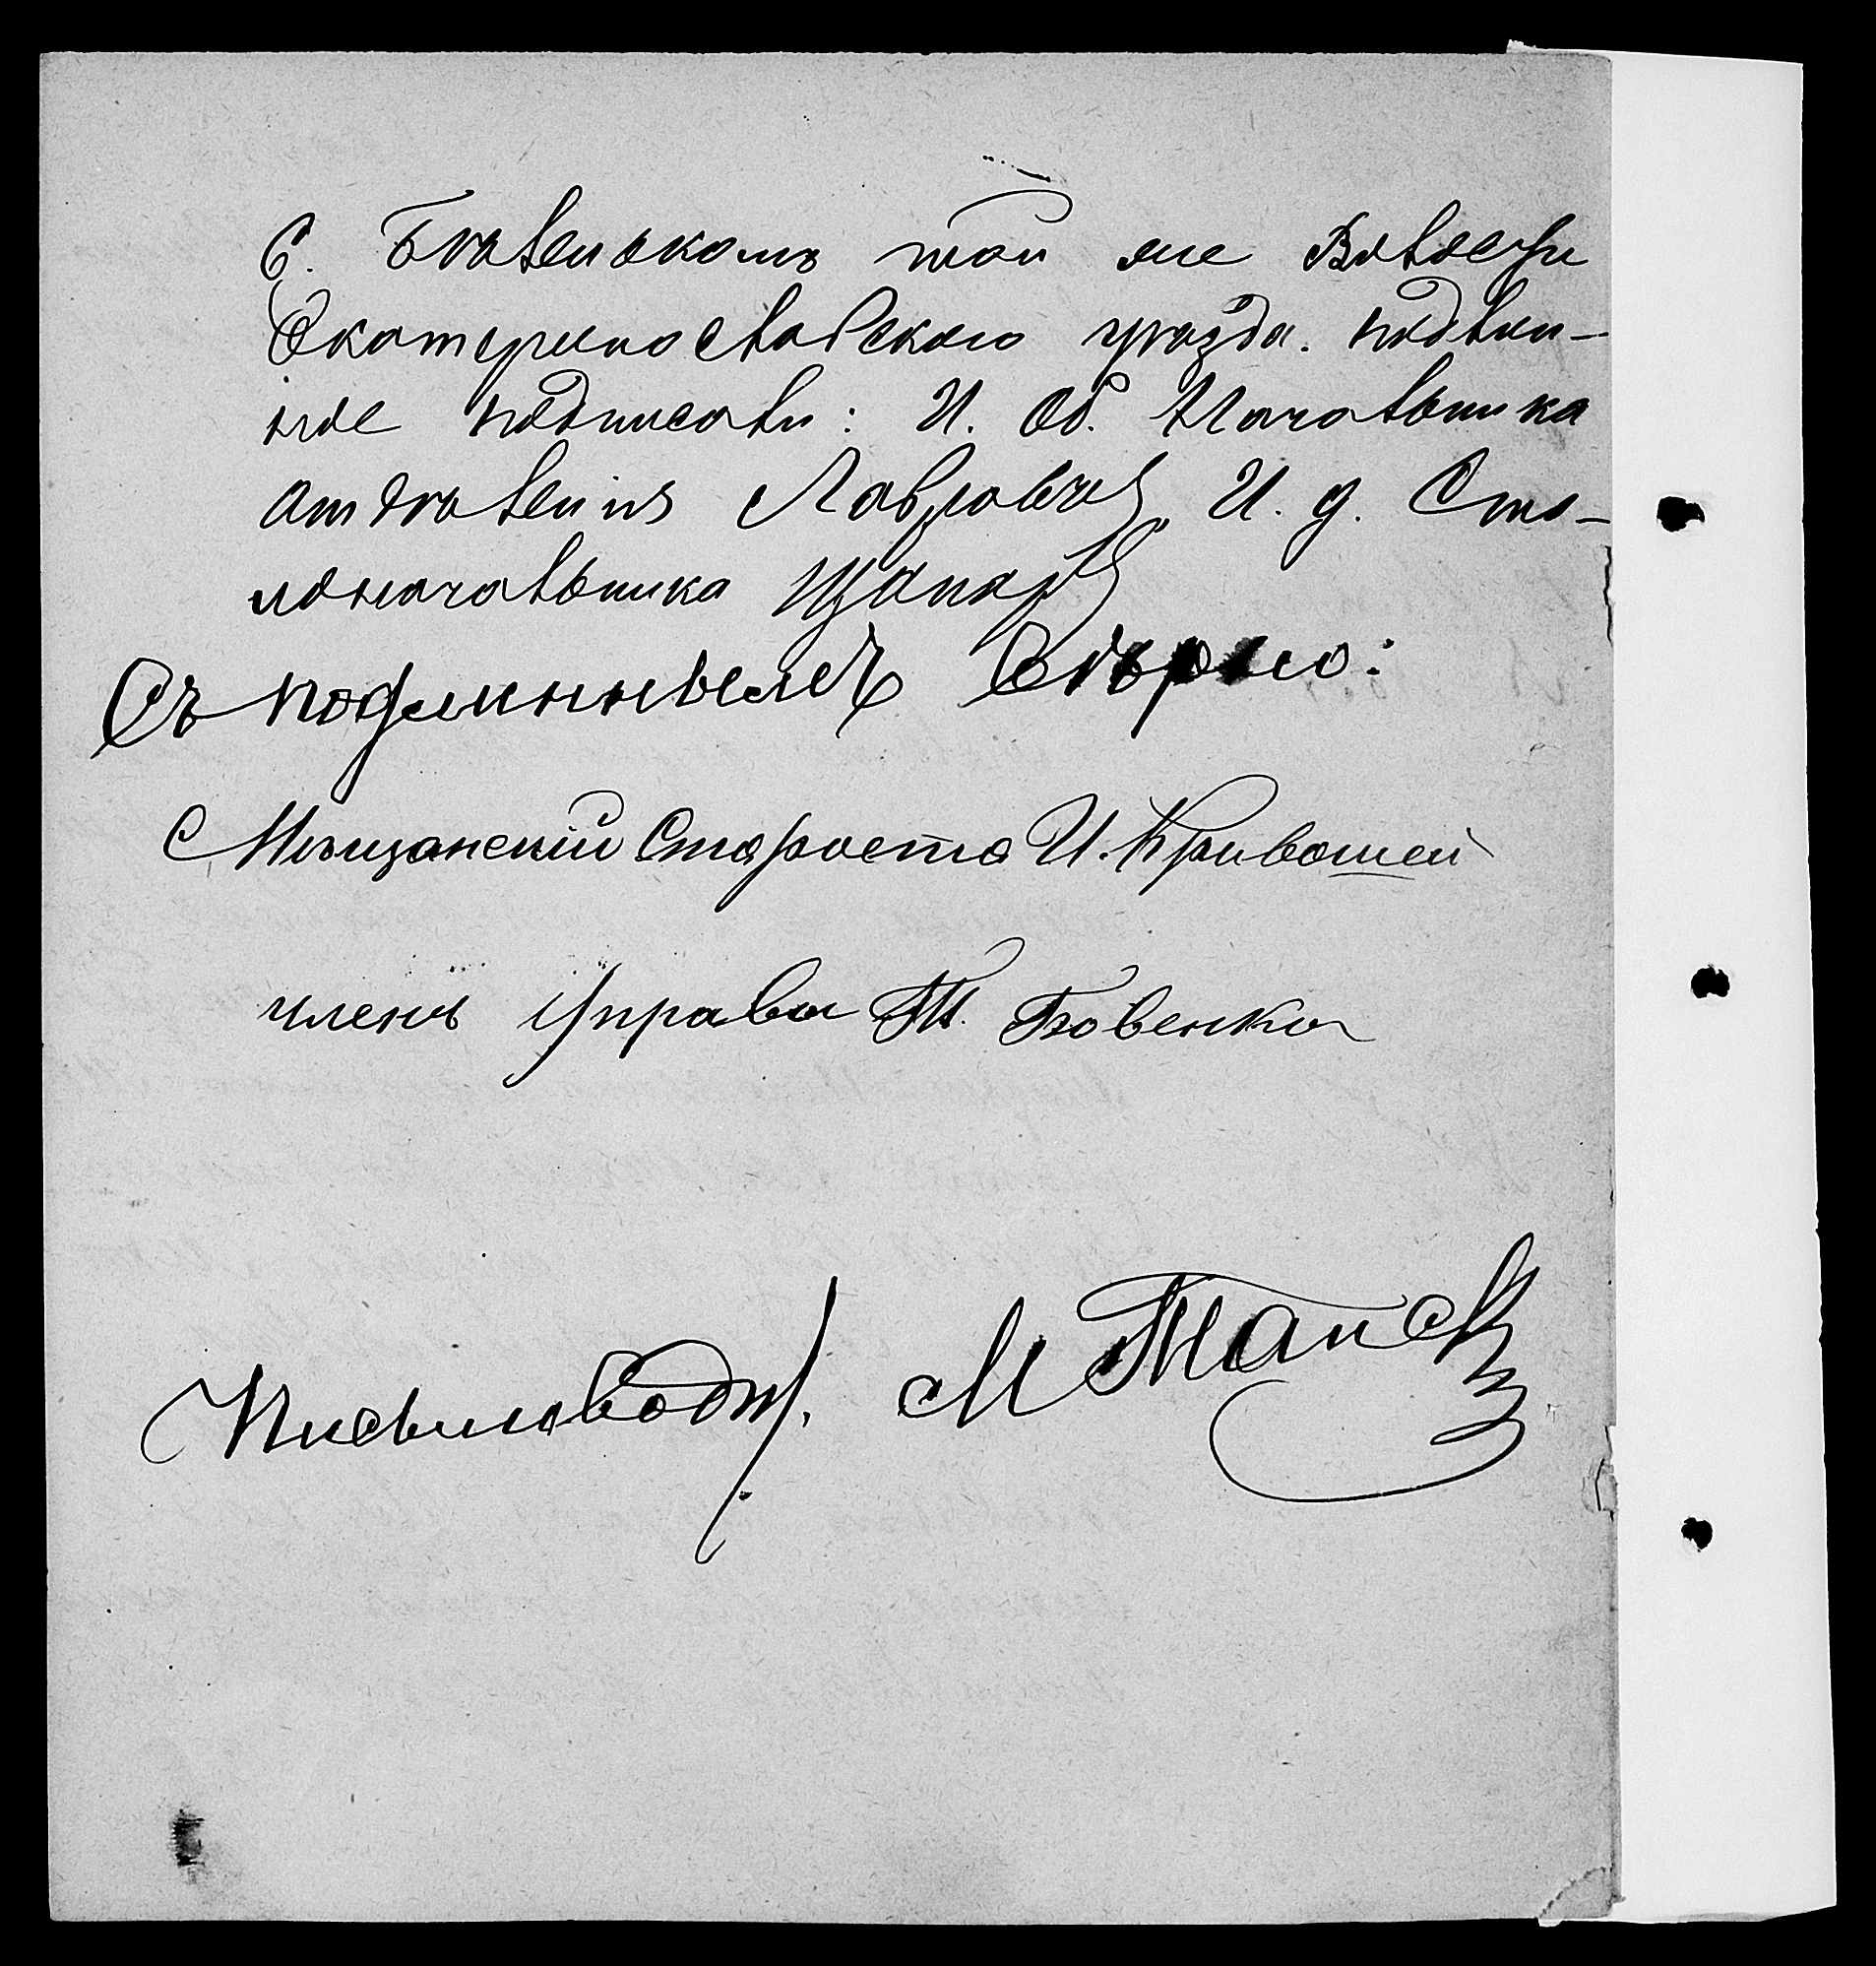 С. Бѣленькомъ той же Волости
Екатеринославскаго уѣзда. Подлин-
ное подписали: И. Об. Начальника
отдѣленія И. д. Сто-
лоначальника Щапар
Съ подлиннымъ Свѣрно:
Мѣщанскій Староста И. Кривошей
членъ Управы Т. Бовенко
Письмоводит. М